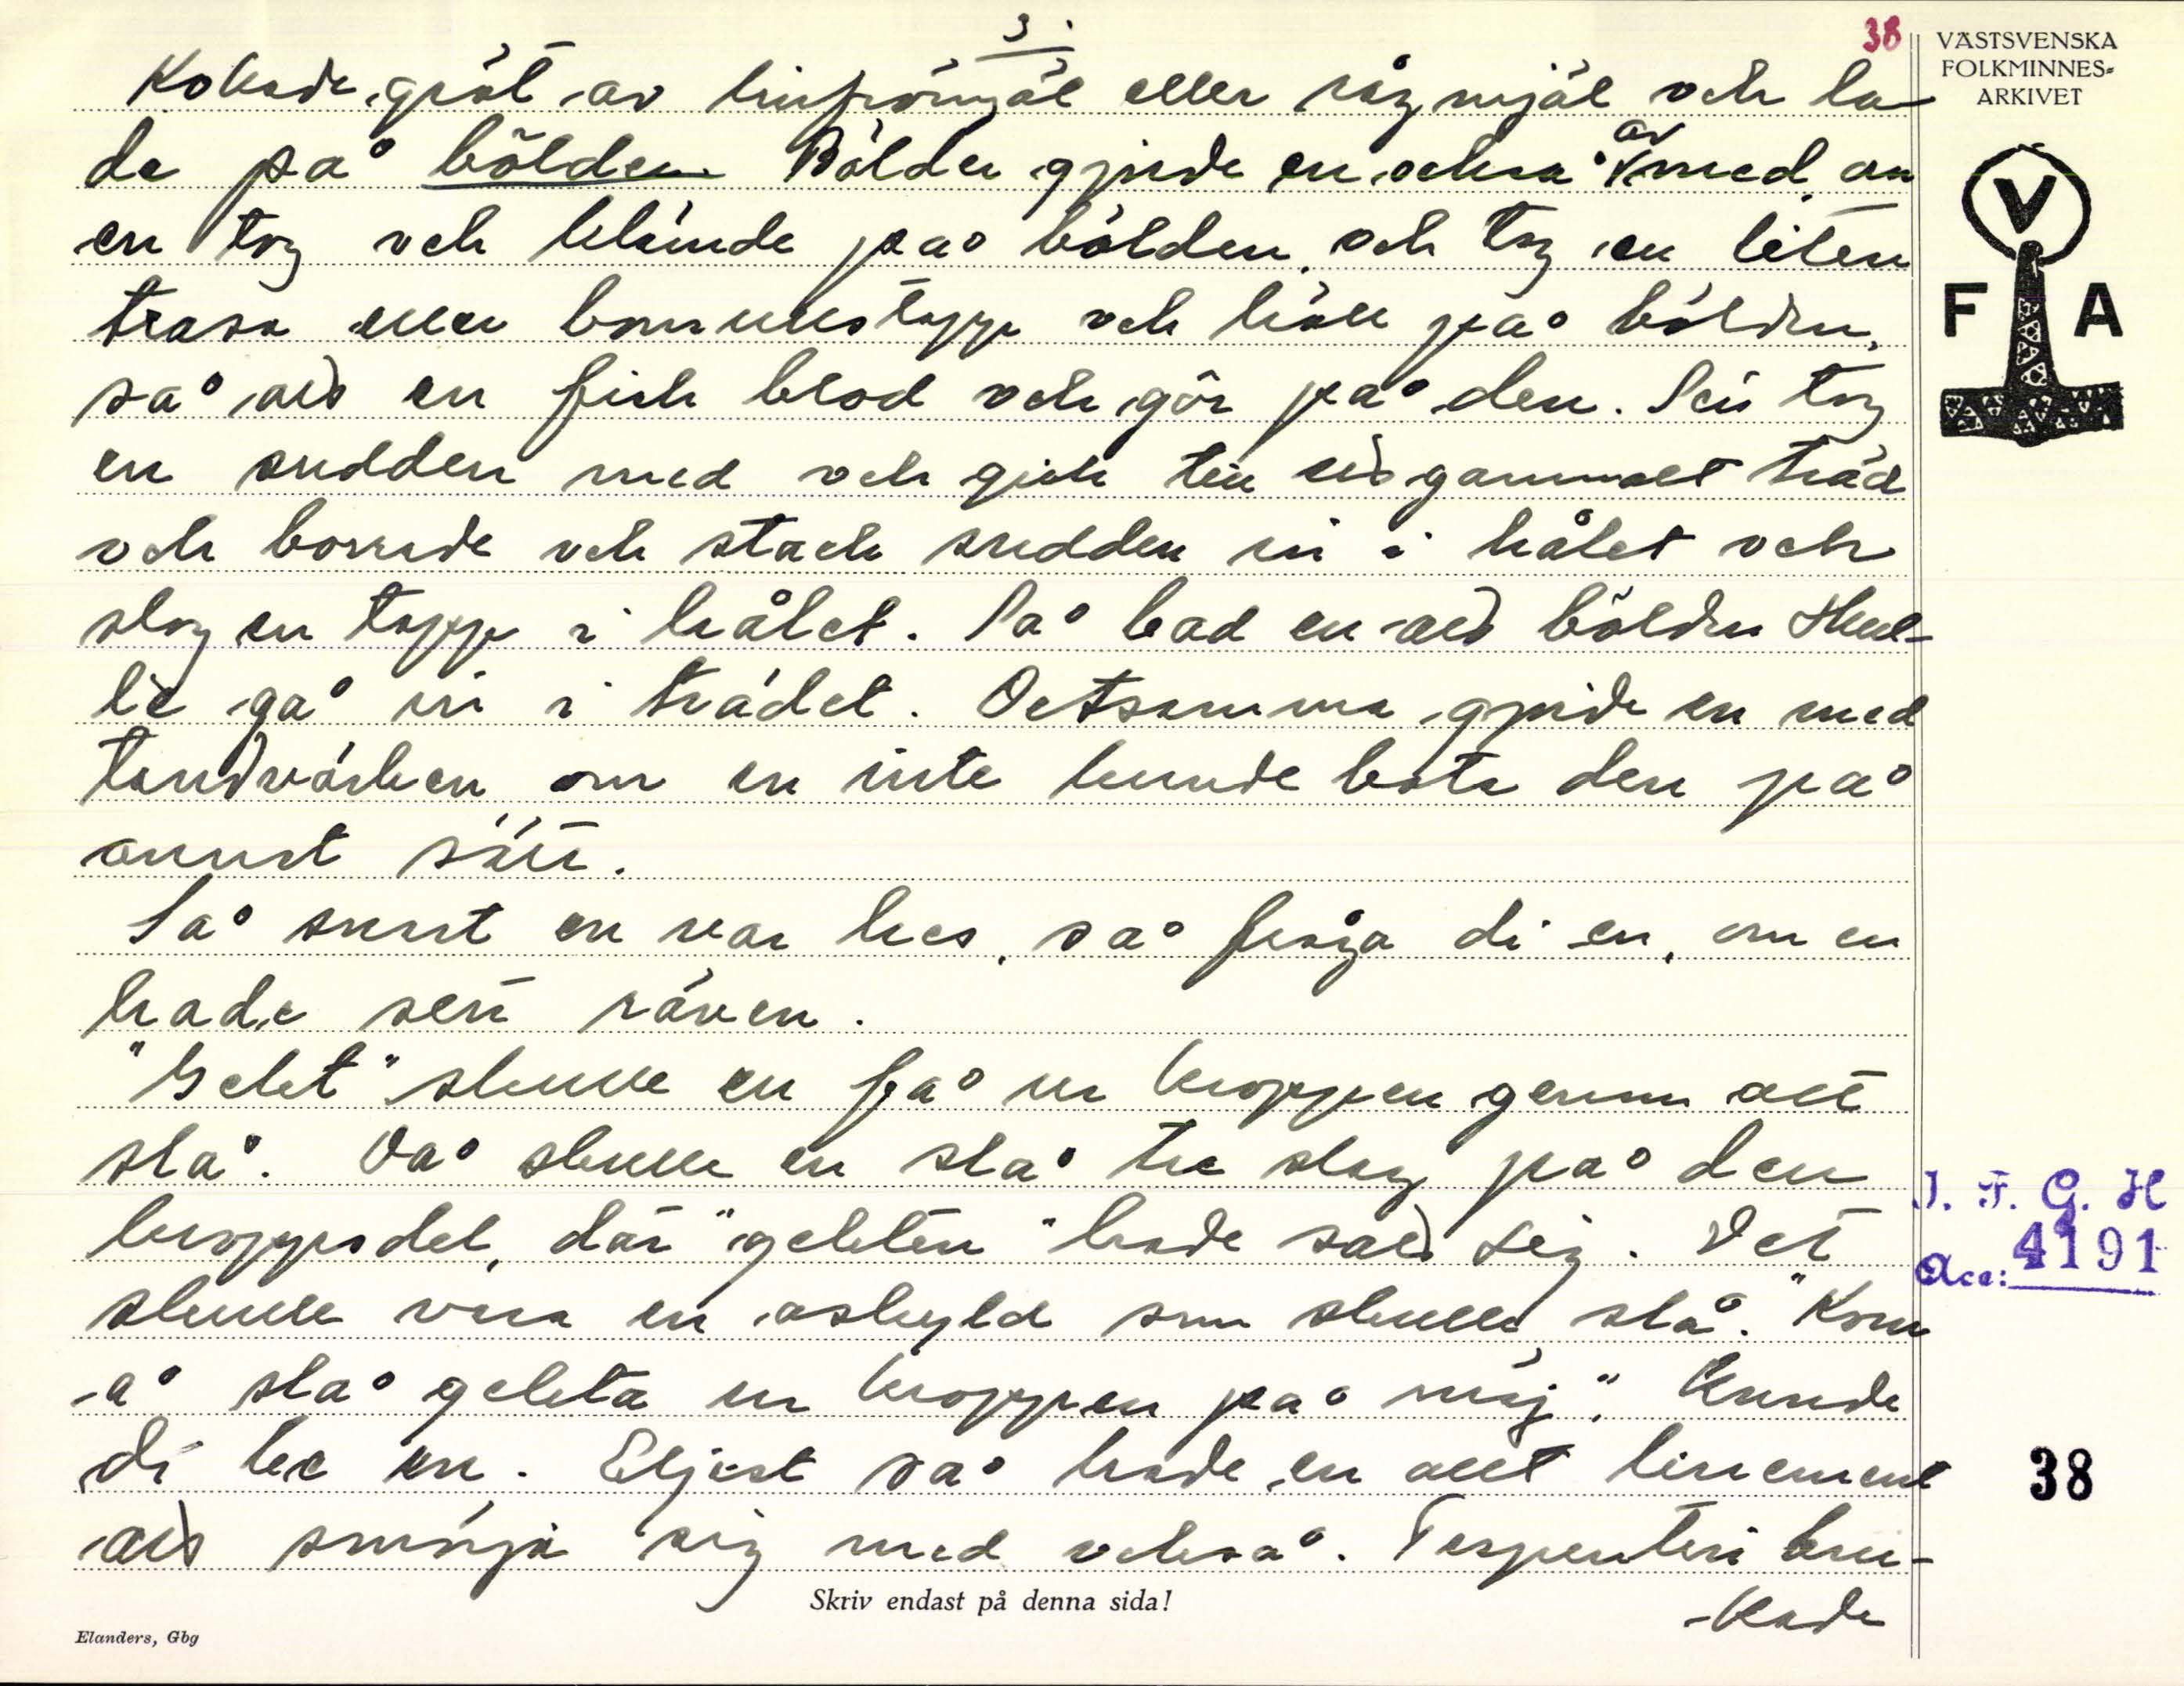 3.
38
VÄSTSVENSKA
FOLKMINNES-
ARKIVET
Kokade gröt av linfrömjöl eller rågmjöl och la-
de på bölden. Bölder gjorde en också av med, om
en tog och klämde på bölden, och tog en liten
trasa eller bomullstapp och höll på bölden,
så att en fick blod och gör på den. Sen tog
en sudden med och gick till ett gammalt träd
och borrade och stack sudden in i hålet och
slog en tapp i hålet. Så bad en att bölden skul-
le gå in i trädet. Detsamma gjorde en med
tandvärken om en inte kunde bota den på
annat sätt.
Så snart en var hes, så fråga di en, om en
hade sett räven.
"Gelet" skulle en få ur kroppen genom att
slå. Då skulle en slå tre slag på den
kroppsdel, där "geleten" hade satt sig. Det
skulle vara en oskyld som skulle slå. "Kom
å slå geleta ur kroppen på mig". Kunde
di be en. Eljest så hade en allt linement
att smörja sig med också. Terpentin bru-
-kade
V
F A
I. F. G. H
Acc: 4191
38
Skriv endast på denna sida!
Elanders, Gbg